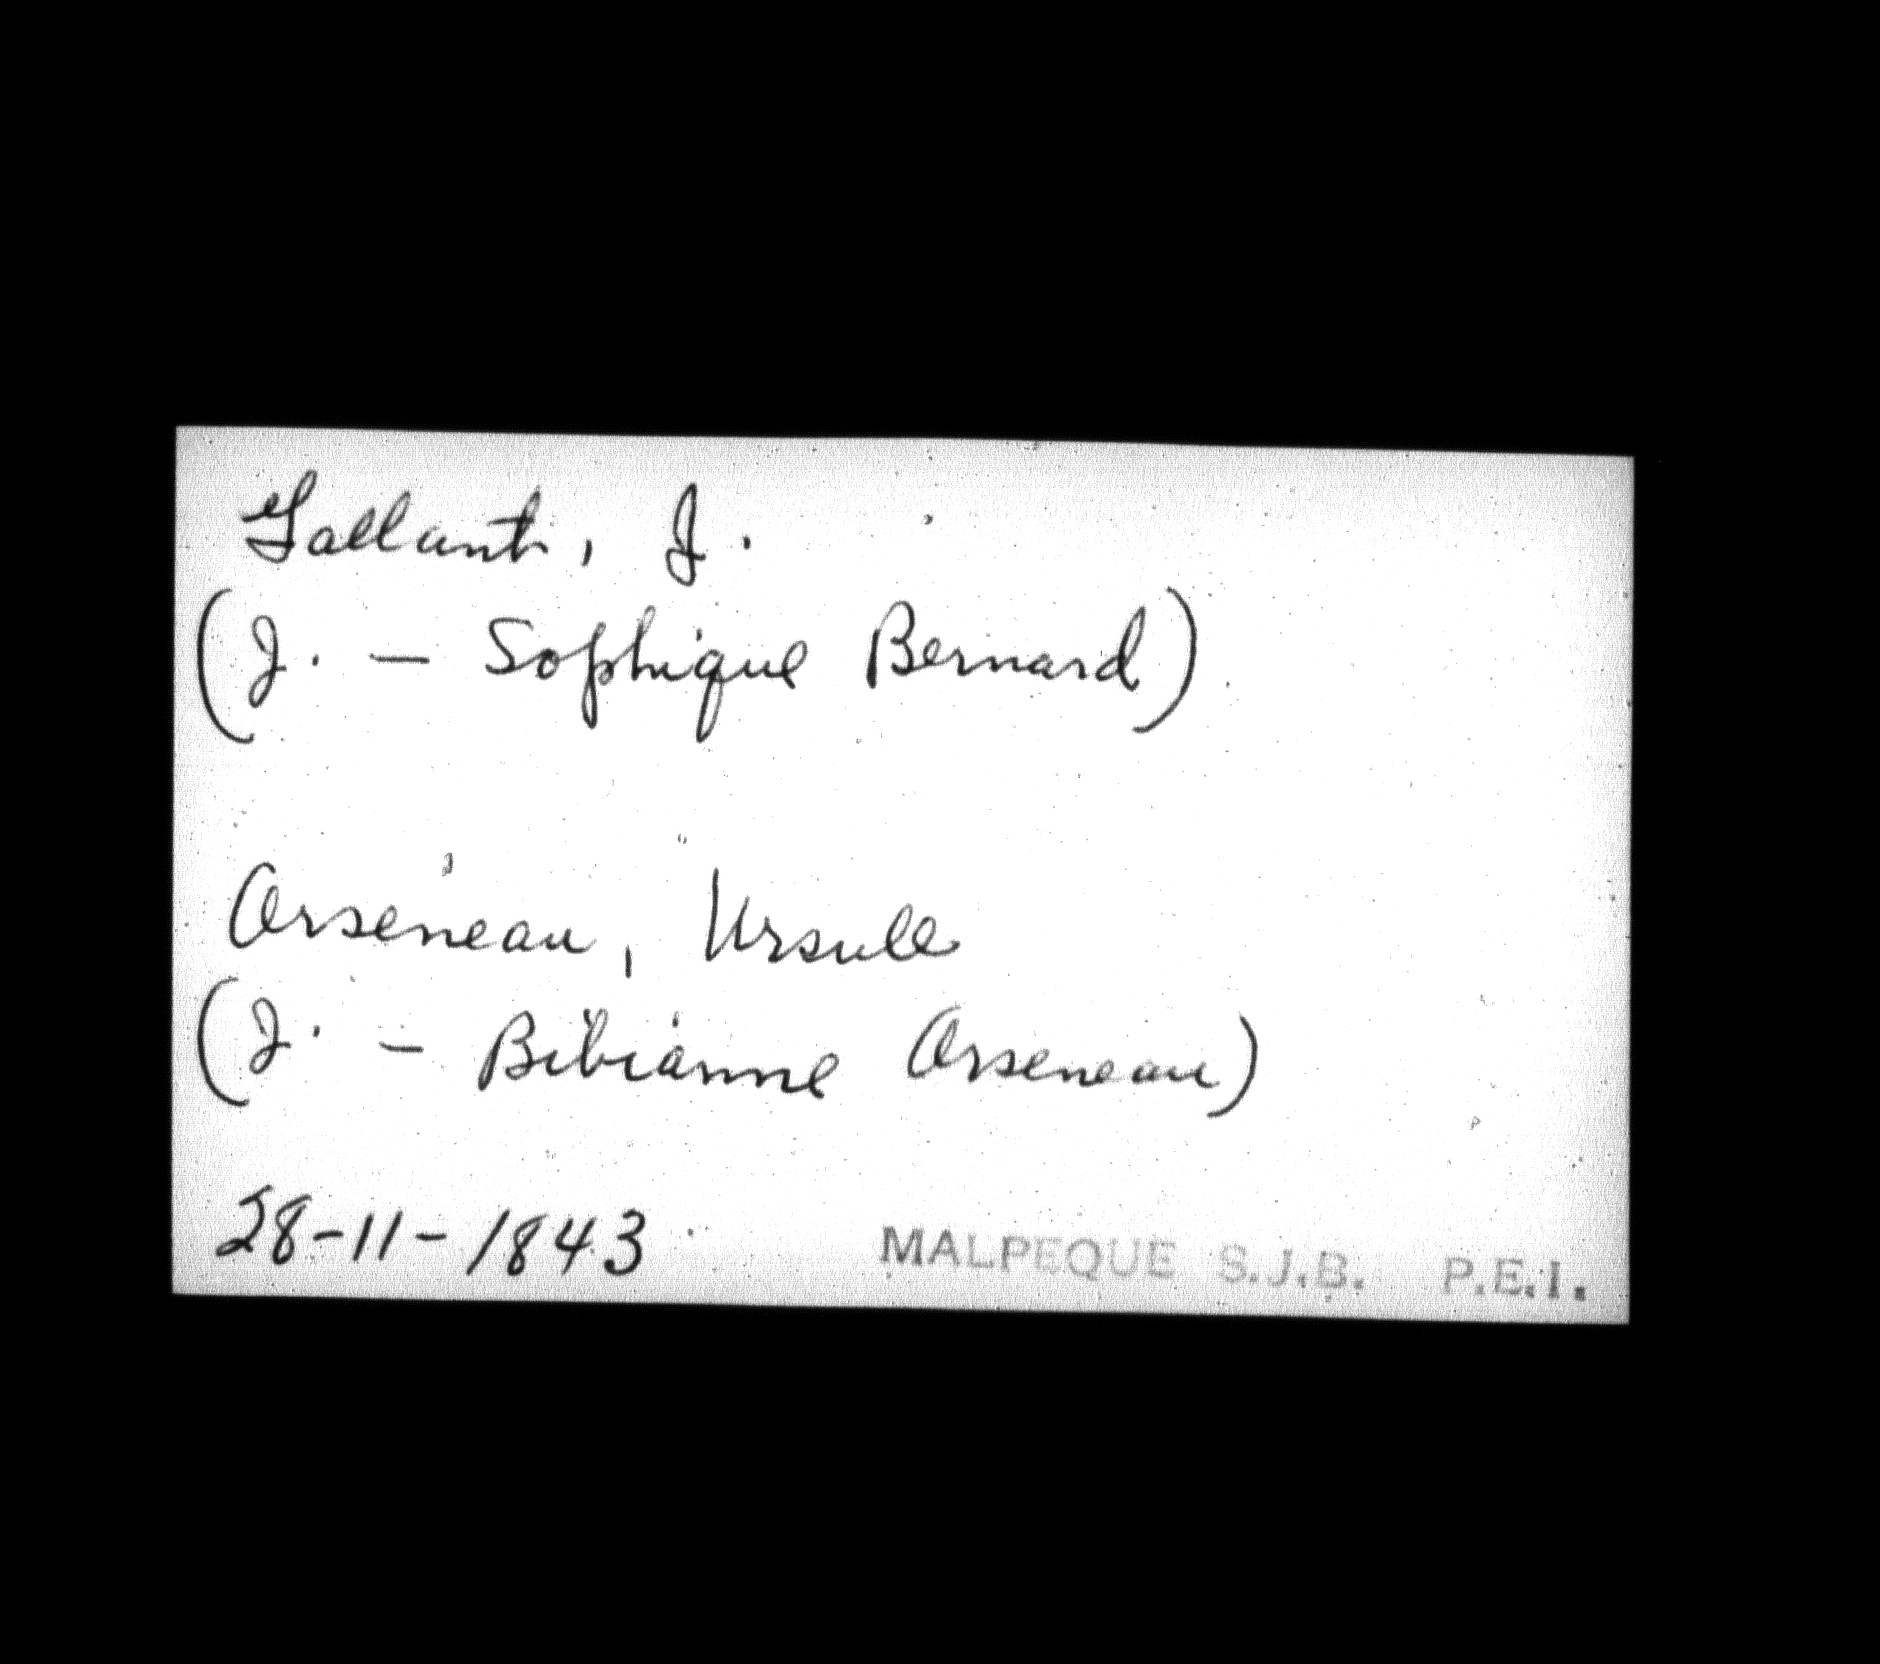 Gallant, J.
(J. - Sophique Bernard)
Arseneau, Ursule
(J. - Bibianne Arseneau)
28-11-1843 MALPEQUE S.J.B. P.E.I.